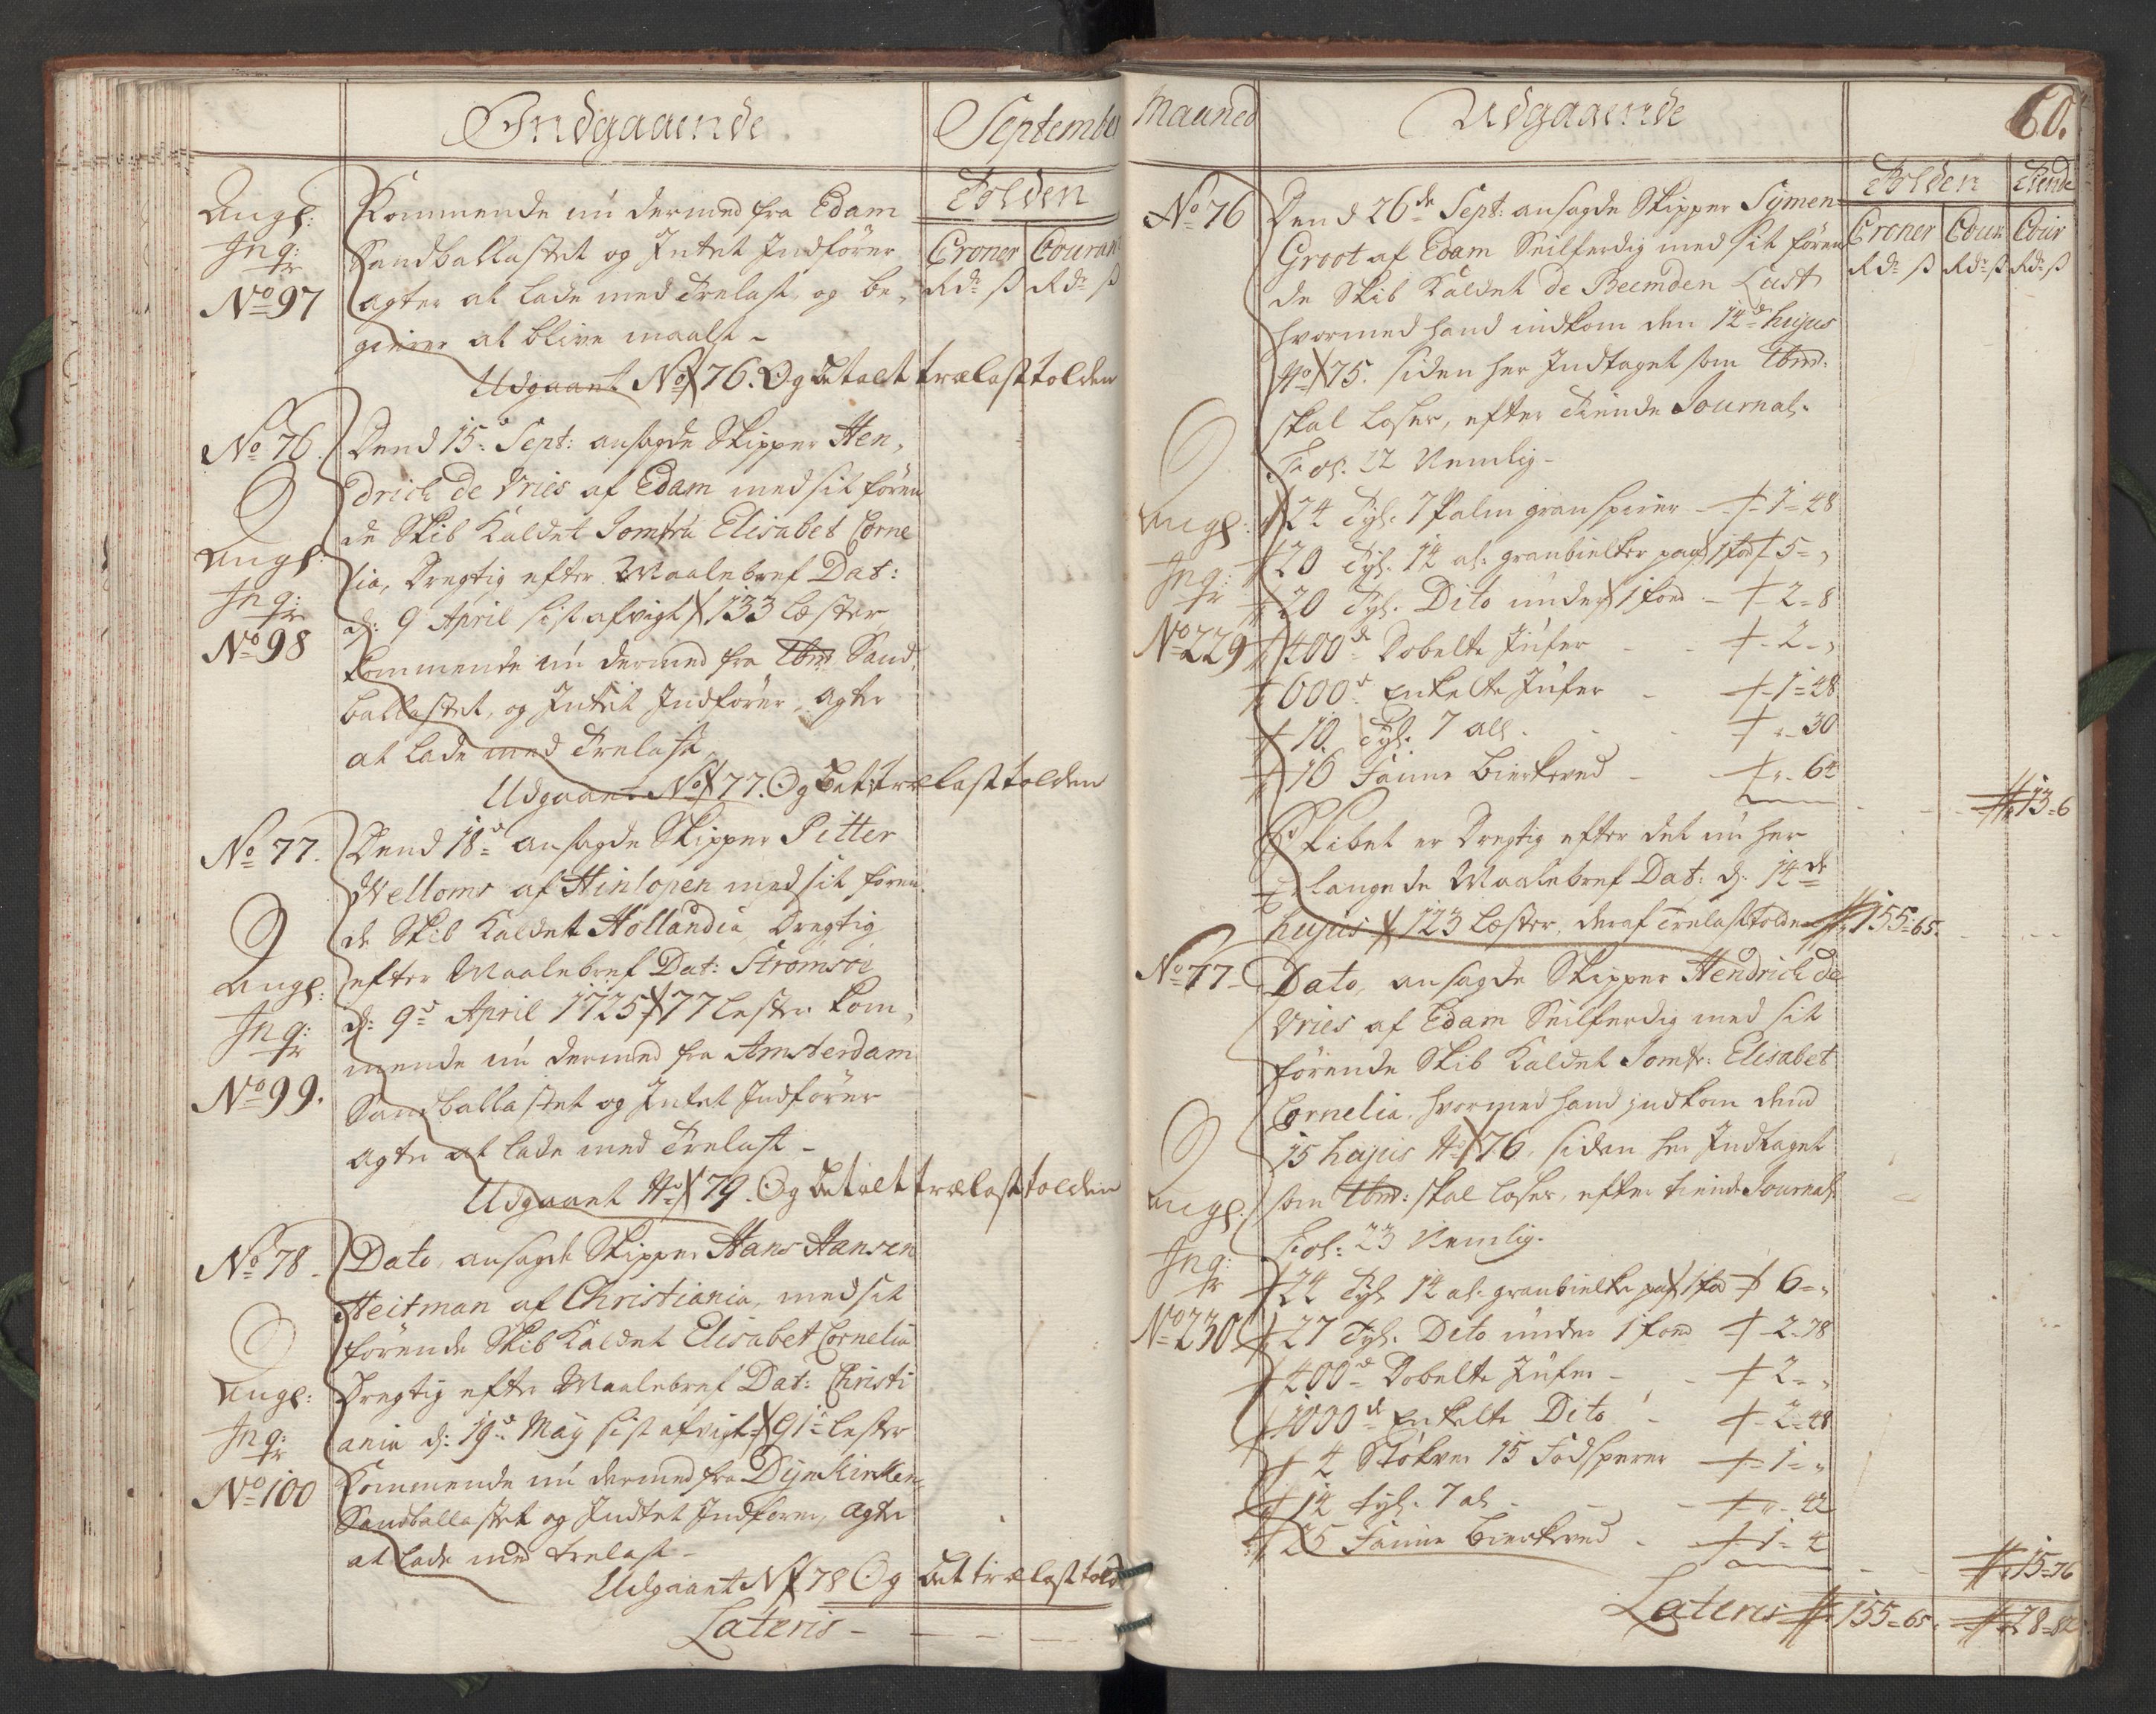 Indgaaende
September
Tolden
Croner Courant
Rdr ß Rdr ß
Angl:
Inq:
No 97
Kommende nu dermed fra Edam
Sandballastet og Intet Indfører
agter at lade med Trelast, og be,
gierer at blive maalt -
Udgaaet No 76. Og betalt trælasttolden
No 76.
Angl:
Inq:
No 98
Dend 15de Sept: ansagde Skipper Hen,
drich de Vries af Edam med sit føren
de Skib Kaldet Jomfru Elisabet Corne
lia, Dregtig efter Maalebref Dat:
d: 9 April sist afvigt 133 Læster
kommende nu dermed fra Ibm Sand,
ballastet, og Intet Indfører, agter
at lade med Trelast
Udgaaet No 77. Og bet: trælasttolden
No 77.
Angl:
Inq:
No 99.
Dend 18de ansagde Skipper Pitter
Welloms af Hinlopen med sit føren
de Skib Kaldet Hollandia Dregtig
efter Maalebref Dat: Strømsøe
d: 9de April 1725 77 lester kom,
mende nu dermed fra Amsterdam
Sandballastet og Intet Indfører
agter at lade med Trelast -
Udgaaet No 79. Og betalt trælasttolden
No 78
Angl:
Inq:
No 100
Dato, ansagde Skipper Hans Hansen
Heitman af Christiania, med sit
førende Skib Kaldet Elisabet Cornelia
Dregtig efter Maalebref Dat: Christi
ania d: 19de May sist afvigt 91 lester
Kommende nu dermed fra Dynkirken
Sandballastet og Indtet Indfører, agter
at lade med trelast -
Udgaaet No 78 Og bet trælasttold
Lateris -
Maaned
Udgaaende
60.
Tolden Tiende
Croner Cour Cour
Rdr ß Rdr ß Rdr ß
No 76
Angl:
Inq:
No 229
Dend 26de Sept: ansagde Skipper Symen
Groot af Edam Seilferdig med sit føren
de Skib Kaldet de Beemden Lust
hvormed hand indkom den 14de hujus
No 75. siden her Indtaget som Ibm:
skal loses, efter Tiende Journal.
Fol. 22 Nemlig -
24 Tyl. 7 Palm granspirer - 1 - 48
20 Tyl. 14 al. granbielker paa 1 fod 5 - "
20 Tyl. Dito under 1 foed - 2 - 8
400de Dobelte Jufer - 2 - "
600de Enkelte Jufer - 1 - 48
10 Tyl. 7 all - " - 30
16 Faune Bierkeved - " - 64
13 - 6
Skibet er Dregtig efter det nu her
erlangede Maalebref Dat: d: 14de
hujus 123 Læster, deraf Trelasttolden 155 - 65.
No 77
Angl:
Inq:
No 230
Dato, ansagde Skipper Hendrich de
Vries af Edam Seilferdig med sit
førende Skib Kaldet Jomfr: Elisabet
Cornelia, hvormed hand indkom dend
15 hujus No 76, siden her Indtaget
som Ibm: skal loses, efter tiende Journal
Fol: 23 Nemlig.
24 Tyl 14 al. granbielker paa 1 fod 6 - "
27 Tyl. Dito under 1 foed 2 - 78
400de Dobelte Jufer - 2 - "
1000de Enkelte Dito - 2 - 48
4 Støkver 15 Fodsperer 1 - "
14 Tyl. 7 al - " - 42
25 Faune Bierkeved - 1 - 4
15 - 76
Lateris 155 - 65. 28 - 82